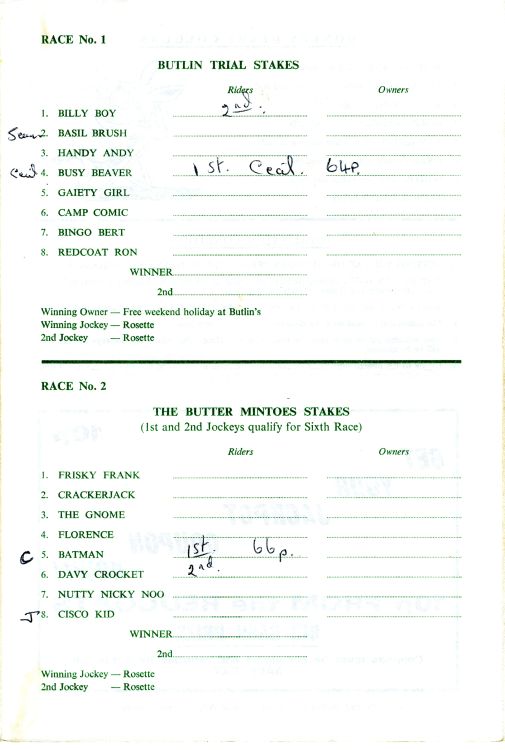 RACE No. 1
BUTLIN TRIAL STAKES
Riders Owners
1. BILLY BOY 2nd.
2. BASIL BRUSH
3. HANDY ANDY
Cecil 4. BUSY BEAVER 1st. Cecil. 64P.
5. GAIETY GIRL
6. CAMP COMIC
7. BINGO BERT
8. REDCOAT RON
WINNER
2nd
Winning Owner — Free weekend holiday at Butlin's
Winning Jockey — Rosette
2nd Jockey — Rosette
RACE No. 2
THE BUTTER MINTOES STAKES
(1st and 2nd Jockeys qualify for Sixth Race)
Riders Owners
1. FRISKY FRANK
2. CRACKERJACK
3. THE GNOME
4. FLORENCE
C 5. BATMAN 1st. 66p.
6. DAVY CROCKET 2nd.
7. NUTTY NICKY NOO
J 8. CISCO KID
WINNER
2nd
Winning Jockey — Rosette
2nd Jockey — Rosette